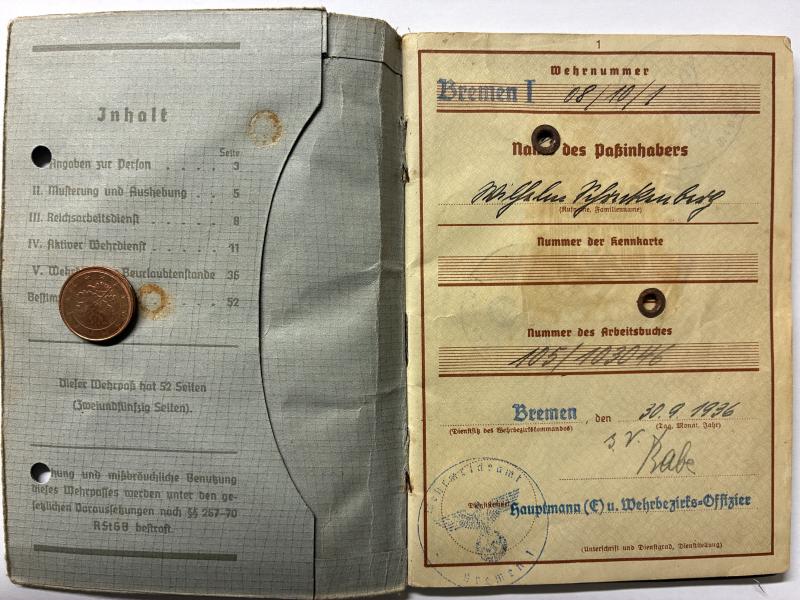 Inhalt
Seite
Angaben zur Person . . . . 3
II. Musterung und Aushebung . . 5
III. Reichsarbeitsdienst . . . . 8
IV. Aktiver Wehrdienst . . . . 11
V. Beurlaubtenstande 36
52
Dieser Wehrpaß hat 52 Seiten
(Zweiundfünfzig Seiten).
und mißbräuchliche Benutzung
dieses Wehrpasses werden unter den ge-
setzlichen Voraussetzungen nach §§ 267-70
RStGB bestraft.
1
Wehrnummer
Bremen I 08/10/1
des Paßinhabers
Wilhelm
(Rufname, Familienname)
Nummer der Kennkarte
Nummer des Arbeitsbuches
105/103046
Bremen, den 30.9.1936
(Dienstsitz des Wehrbezirkskommandos) (Tag, Monat, Jahr)
Rabe
Hauptmann (E) u. Wehrbezirks-Offizier
(Unterschrift und Dienstgrad, Dienststellung)
Wehrmeldeamt
Bremen I